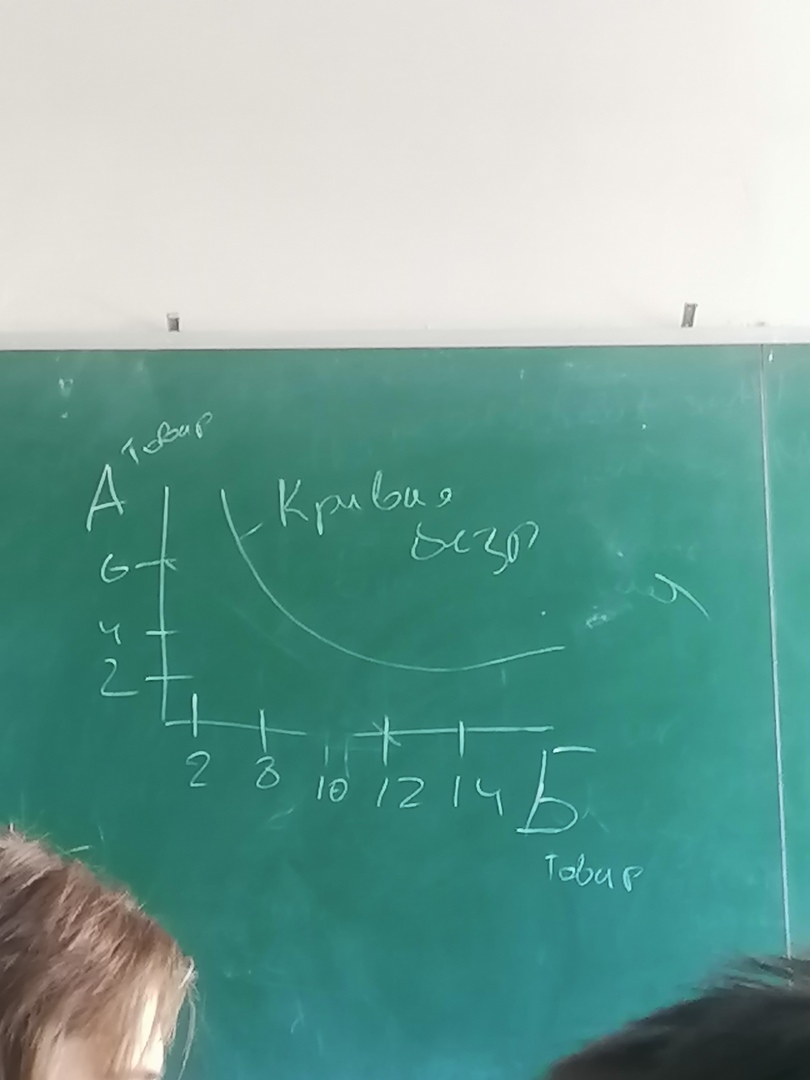 Товар
А
Кривая
безр
6
4
2
2 8 10 12 14 Б
Товар